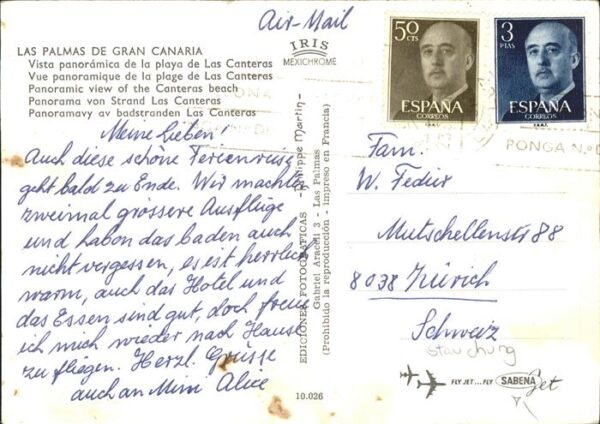 Air-Mail
LAS PALMAS DE GRAN CANARIA
Vista panorámica de la playa de Las Canteras
Vue panoramique de la plage de Las Canteras
Panoramic view of the Canteras beach
Panorama von Strand Las Canteras
Panoramavy av badstranden Las Canteras
IRIS
MEXICHROME
50
CTS
ESPAÑA
CORREOS
3
PTAS
ESPAÑA
CORREOS
PONGA N.º D
Meine Lieben!
Auch diese schöne Ferienreise
geht bald zu Ende. Wir machten
zweimal grössere Ausflüge
und habon das baden auch
nicht vergessen, es ist herrlich
warm, auch das Hotel und
das Essen sind gut, doch freue
ich mich wieder nach Hause
zu fliegen. Herzl. Grüsse
auch an Mimi Alice
EDICIONES FOTOGRAFICAS - Philippe Martin -
Gabriel Aracdi 3 - Las Palmas
(Prohibido la reproducción - Impreso en Francia)
10.026
Fam.
W. Fedier
Mutschellenstr 88
8038 Zürich
Schweiz
Stauchung
FLY JET...FLY SABENA Jet